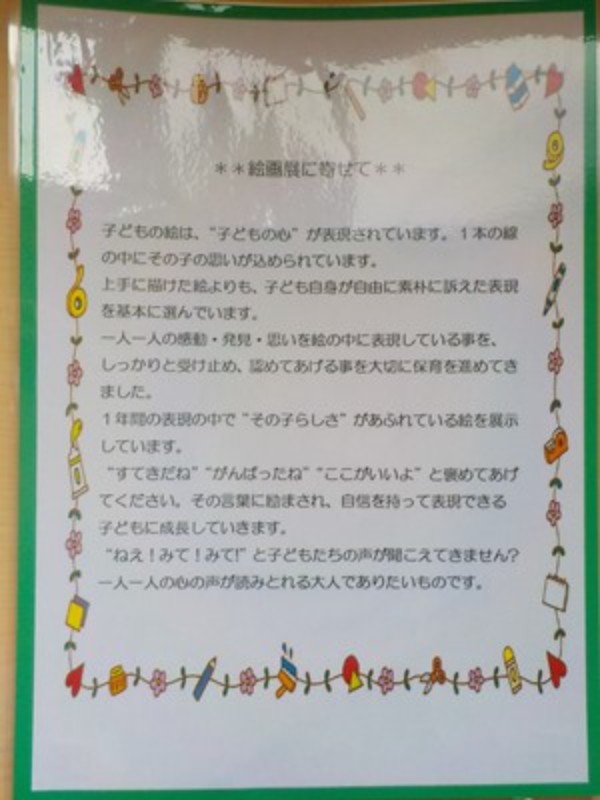 **絵画展に寄せて**
子どもの絵は、“子どもの心”が表現されています。1本の線
の中にその子の思いが込められています。
上手に描けた絵よりも、子ども自身が自由に素朴に訴えた表現
を基本に選んでいます。
一人一人の感動・発見・思いを絵の中に表現している事を、
しっかりと受け止め、認めてあげる事を大切に保育を進めてき
ました。
1年間の表現の中で“その子らしさ”があふれている絵を展示
しています。
“すてきだね”“がんばったね”“ここがいいよ”と褒めてあげ
てください。その言葉に励まされ、自信を持って表現できる
子どもに成長していきます。
“ねえ!みて!みて!”と子どもたちの声が聞こえてきません?
一人一人の心の声が読みとれる大人でありたいものです。